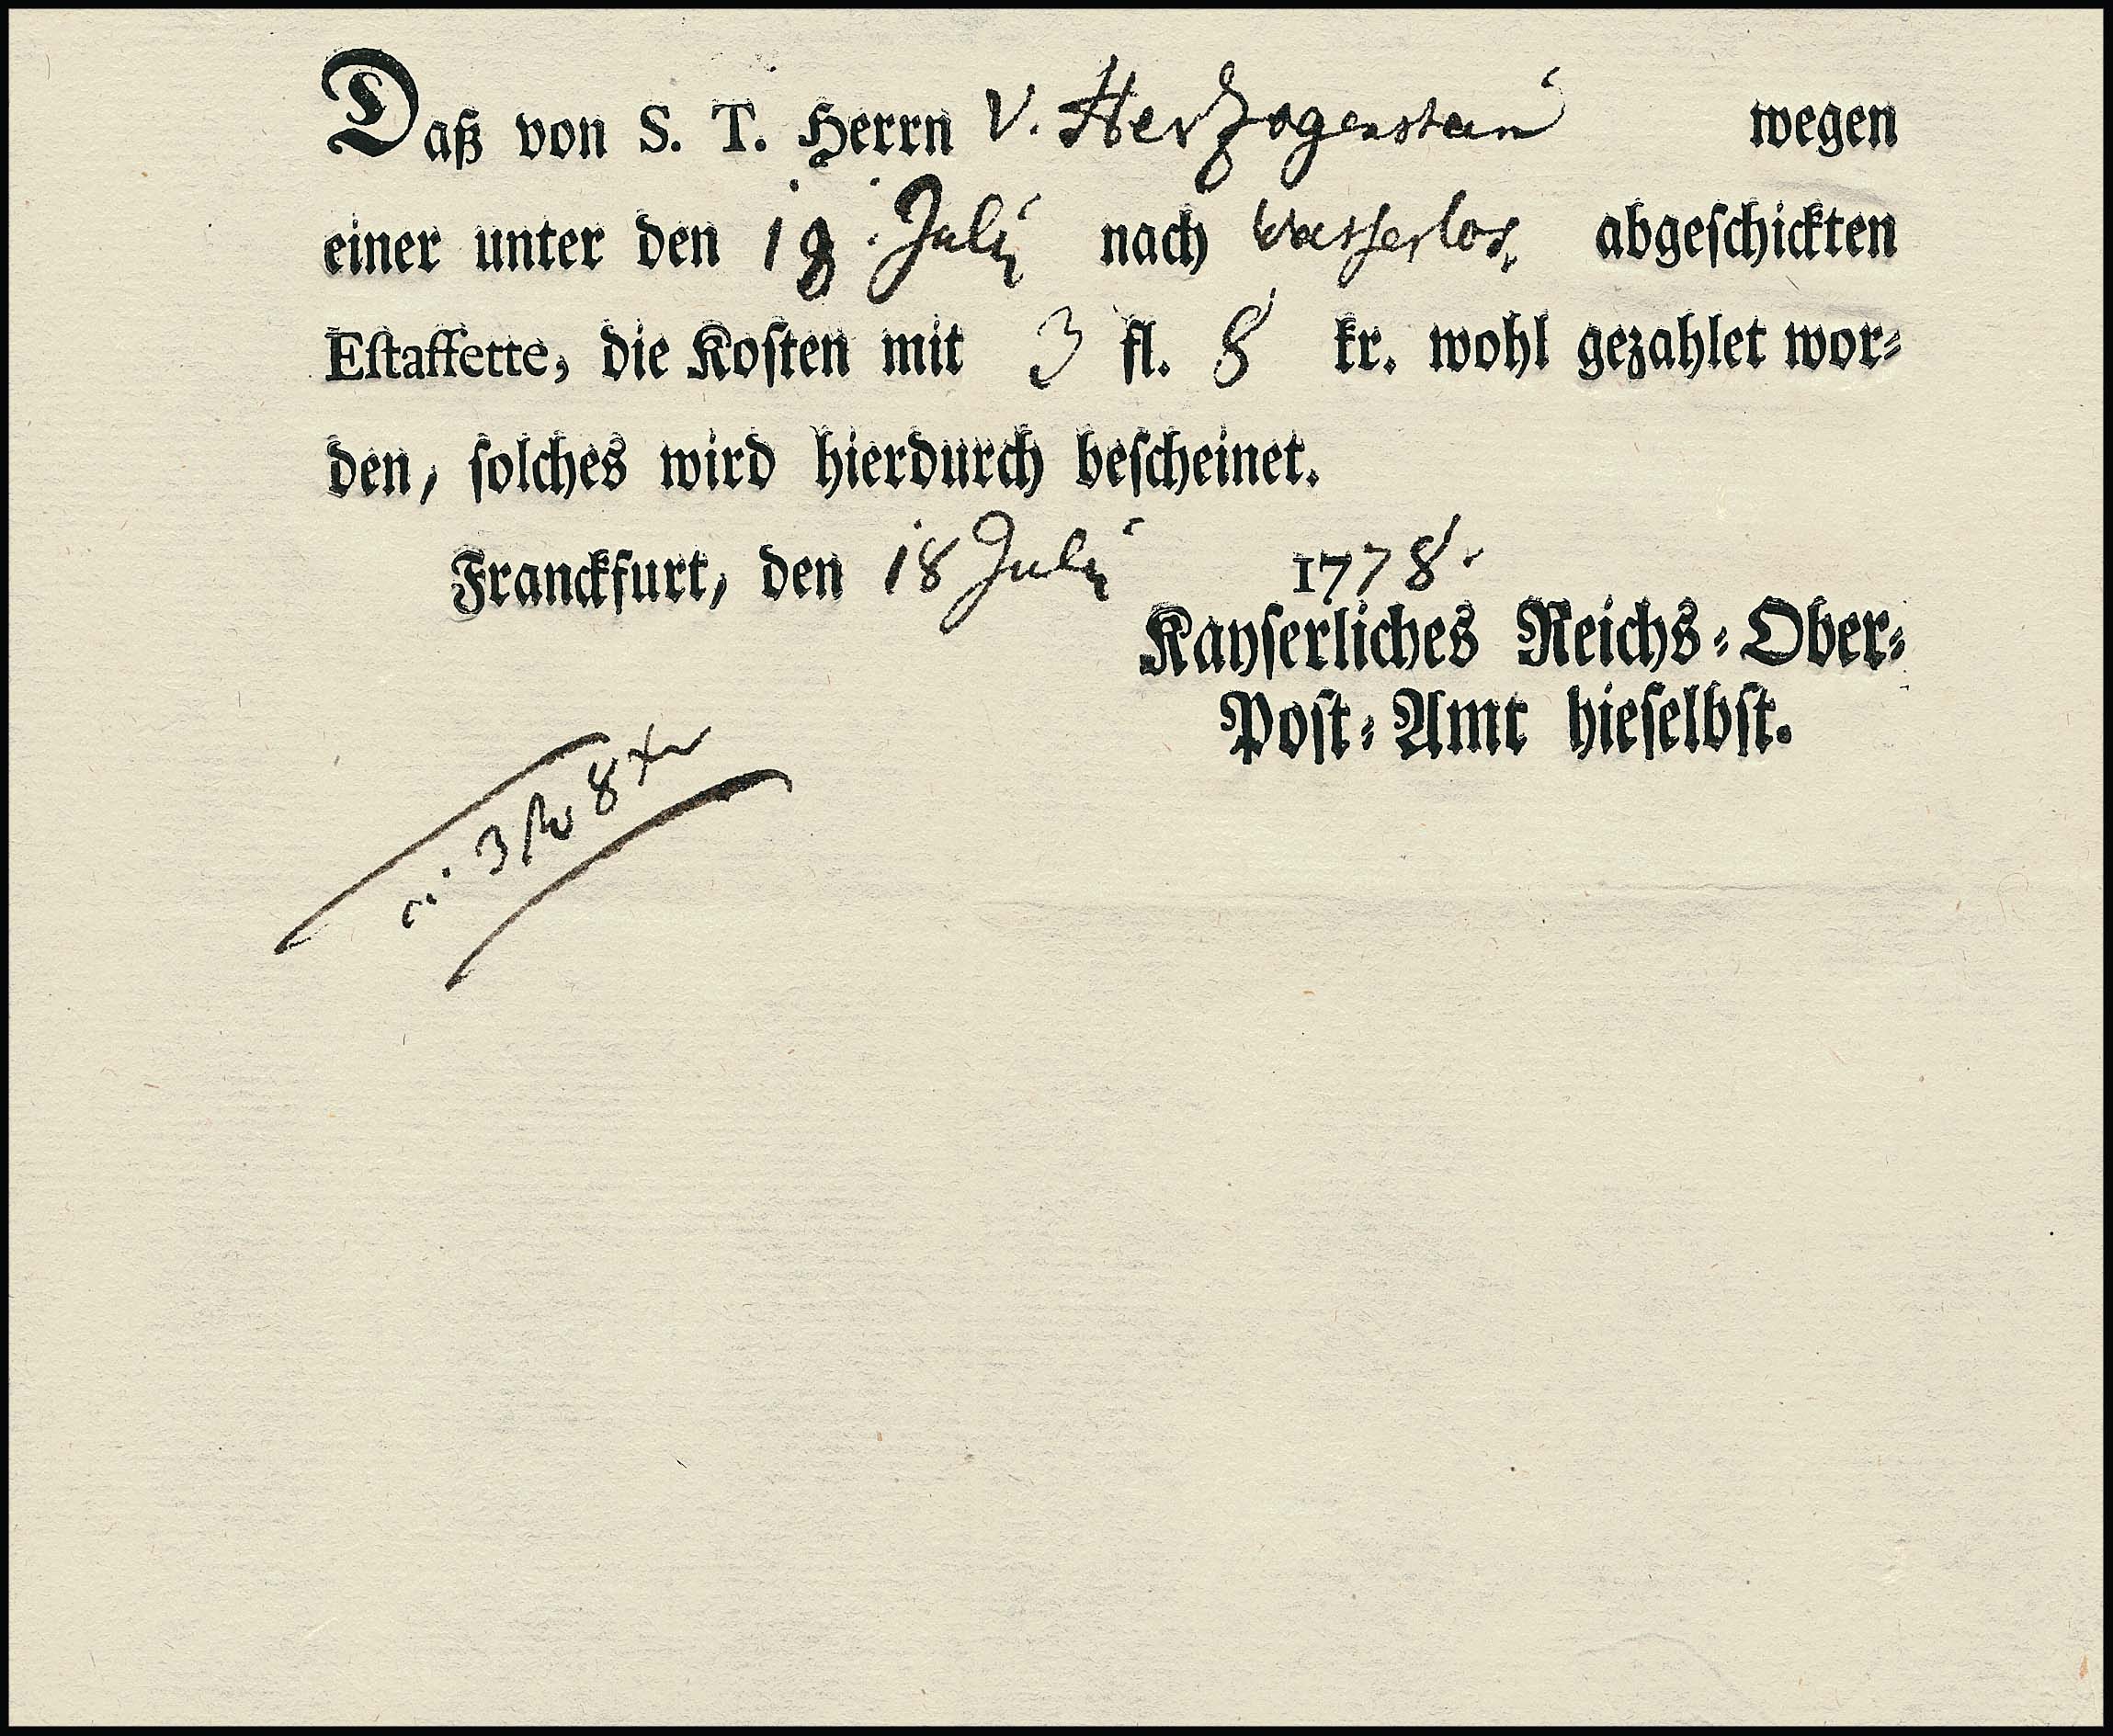 Daß von S. T. Herrn v. Herzogenstein wegen
einer unter den 18. Julij nach Wasserlos abgeſchickten
Eſtaffette, die Koſten mit 3 fl. 8 kr. wohl gezahlet wor⸗
den, ſolches wird hierdurch beſcheinet.
Franckfurt, den 18 Julij 1778.
Kayſerliches Reichs⸗Ober⸗
Poſt⸗Amt hieſelbſt.
3 8